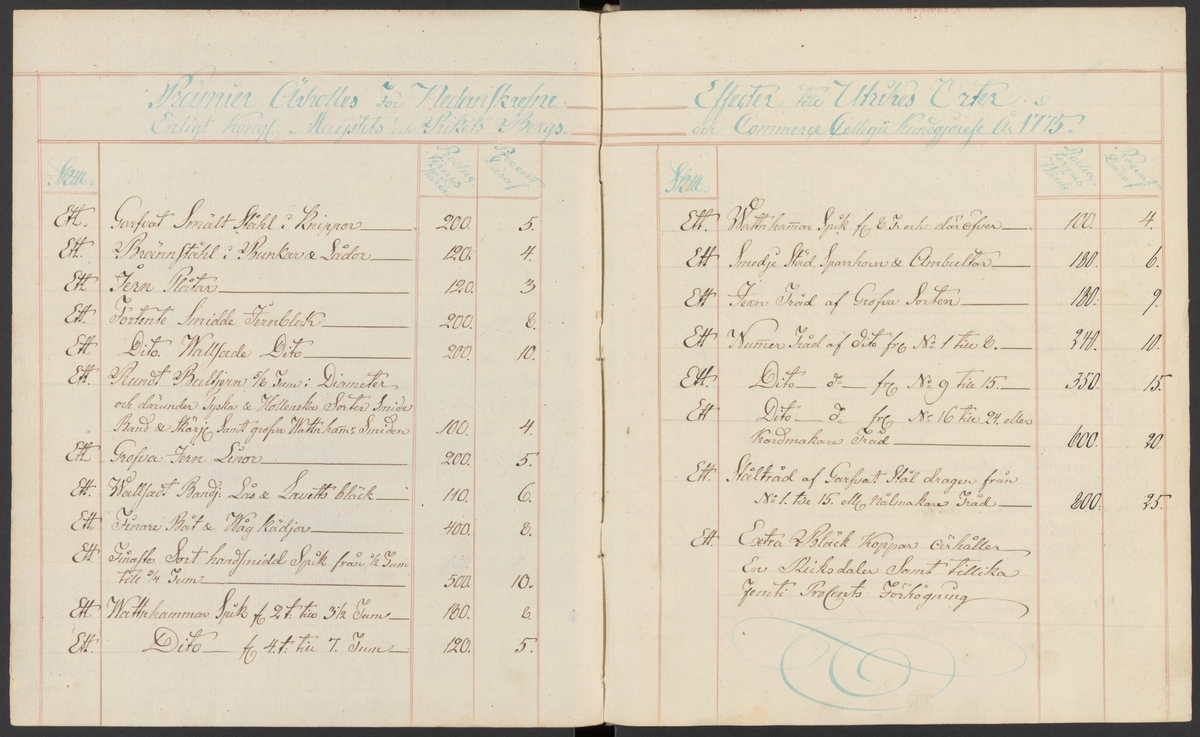 Præmier Ärholles För Nedanskrefne
Enligt Kongl. Maijstets och Rikets Bergs
Skttt.
Produc-
ternes
Värde
Procent
Taral
Ett. Garfvat Smält Ståhl i Knippor 200. 5.
Ett. Brännståhl i Bunkar & Lådor 120. 4.
Ett Jern Plåtar 120. 3
Ett. Förtente Smidde Jernbleck 200. 8.
Ett. Dito. Wallsade Dito 200. 10.
Ett. Rundt Bultjern 5/6 Tum: Diameter
och därunder Tyska & Hollenska Sorter Smide
Band & Skärj Samt grofva Wattnham: Smiden 100. 4.
Ett Grofva Jern Linor 200. 5.
Ett. Wallsadt Bandj: Lås & Lavetts bläck 110. 6.
Ett Finare Båt & Wåg Kädjor 400. 8.
Ett Finaste Sort handsmidd Spik från 1/2 Tum
till 3/4 Tum 500. 10.
Ett Wattnhammar Spik f 2 t: till 3 1/2 Tum 180. 8.
Ett. Dito f 4. t: till 7. Tum 120. 5.
Effecter till Utrikes Orter
och Commerce Collegii Kundgjörelse År 1775.
Skttt.
Produc-
ternes
Värde
Procent
Taral
Ett. Wattnhammar Spik f 8 T. och däröfver 100. 4.
Ett Smedje Städ, Sparrhorn & Ambultar 180. 6.
Ett Jern Tråd af Grofva Sorten 180. 9.
Ett Numer Tråd af dito frå No 1 till 8. 240. 10.
Ett. Dito do frå No 9 till 15. 350. 15.
Ett Dito do frå No 16 till 24 eller
Kardmakare Tråd 600. 20.
Ett. Ståltråd af Garfvat Stål dragen från
No 1. till 15. eller Nålmakare Tråd 800. 25.
Ett. Extra Bläck Koppar ärhåller
En Riksdaler Samt tillika
femti Procents Förhögning